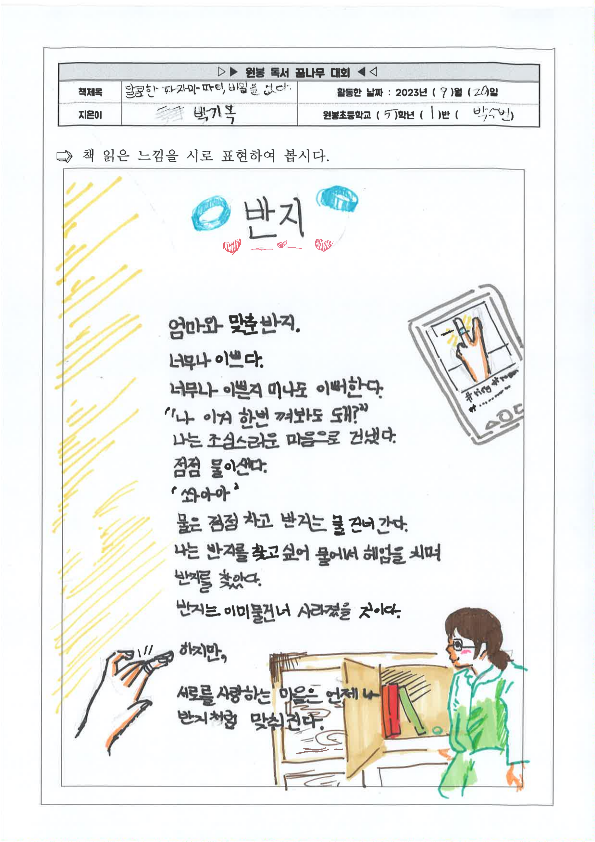 ▷▶ 원봉 독서 꿈나무 대회 ◀◁
책제목 달콤한 파자마 파티, 비밀은 없다. 활동한 날짜 : 2023년 ( 9 )월 ( 20 )일
지은이 박기복 원봉초등학교 ( 5 )학년 ( 1 )반 ( )
⇨ 책 읽은 느낌을 시로 표현하여 봅시다.
반지
엄마와 맞춘반지.
너무나 이쁘다.
너무나 이쁜지 미나도 이뻐한다.
"나 이거 한번 껴봐도 돼?"
나는 조심스러운 마음으로 건넸다.
점점 물이샌다.
'쏴아아'
물은 점점 차고 반지는 물 건너 간다.
나는 반지를 찾고 싶어 물에서 헤엄을 치며
반지를 찾았다.
반지는 이미물건너 사라졌을 것이다.
하지만,
서로를 사랑하는 마음은 언제나
반지처럼 맞춰진다.